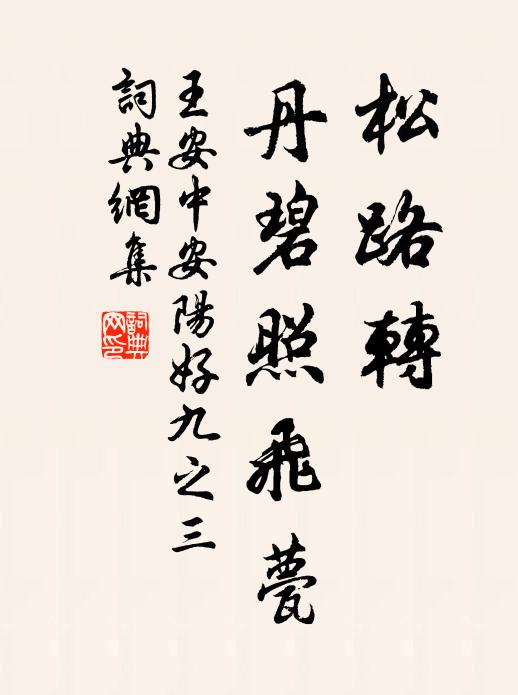 松路轉
丹碧照飛甍
王安中安陽好九之三
詞典網集
詞典
网印